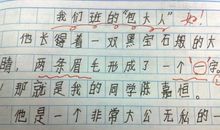 我们班的“包大人”
他长得着一双黑宝石般的大
睛，两条眉毛形成了一个“一”字。
那就是我的同学陈嘉恒。
他是一个非常大公无私的